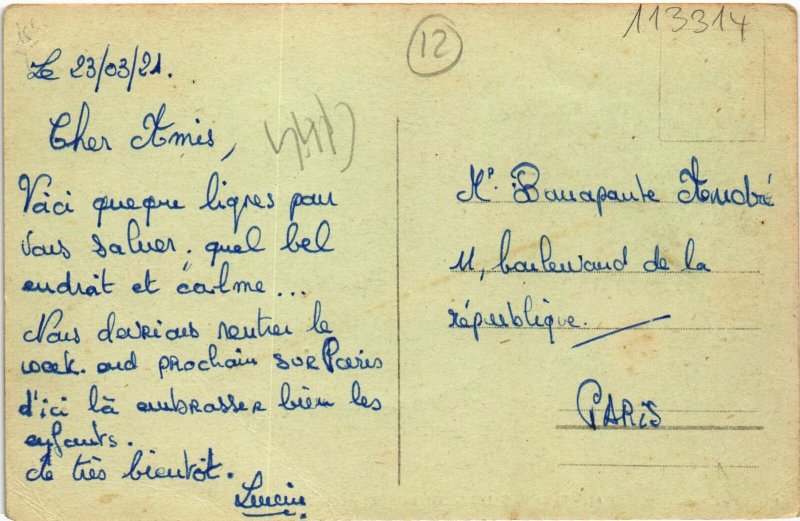 12
113314
Le 23/03/21.
Cher Amis,
Voici queque lignes pour
vous saluer. quel bel
endroit et calme...
Nous devrions rentrer le
week. end prochain sur Paris
d'ici là embrasser bien les
enfants.
de très bientôt.
Lucien
Mr Bonaparte André
11, boulevard de la
république.
PARIS